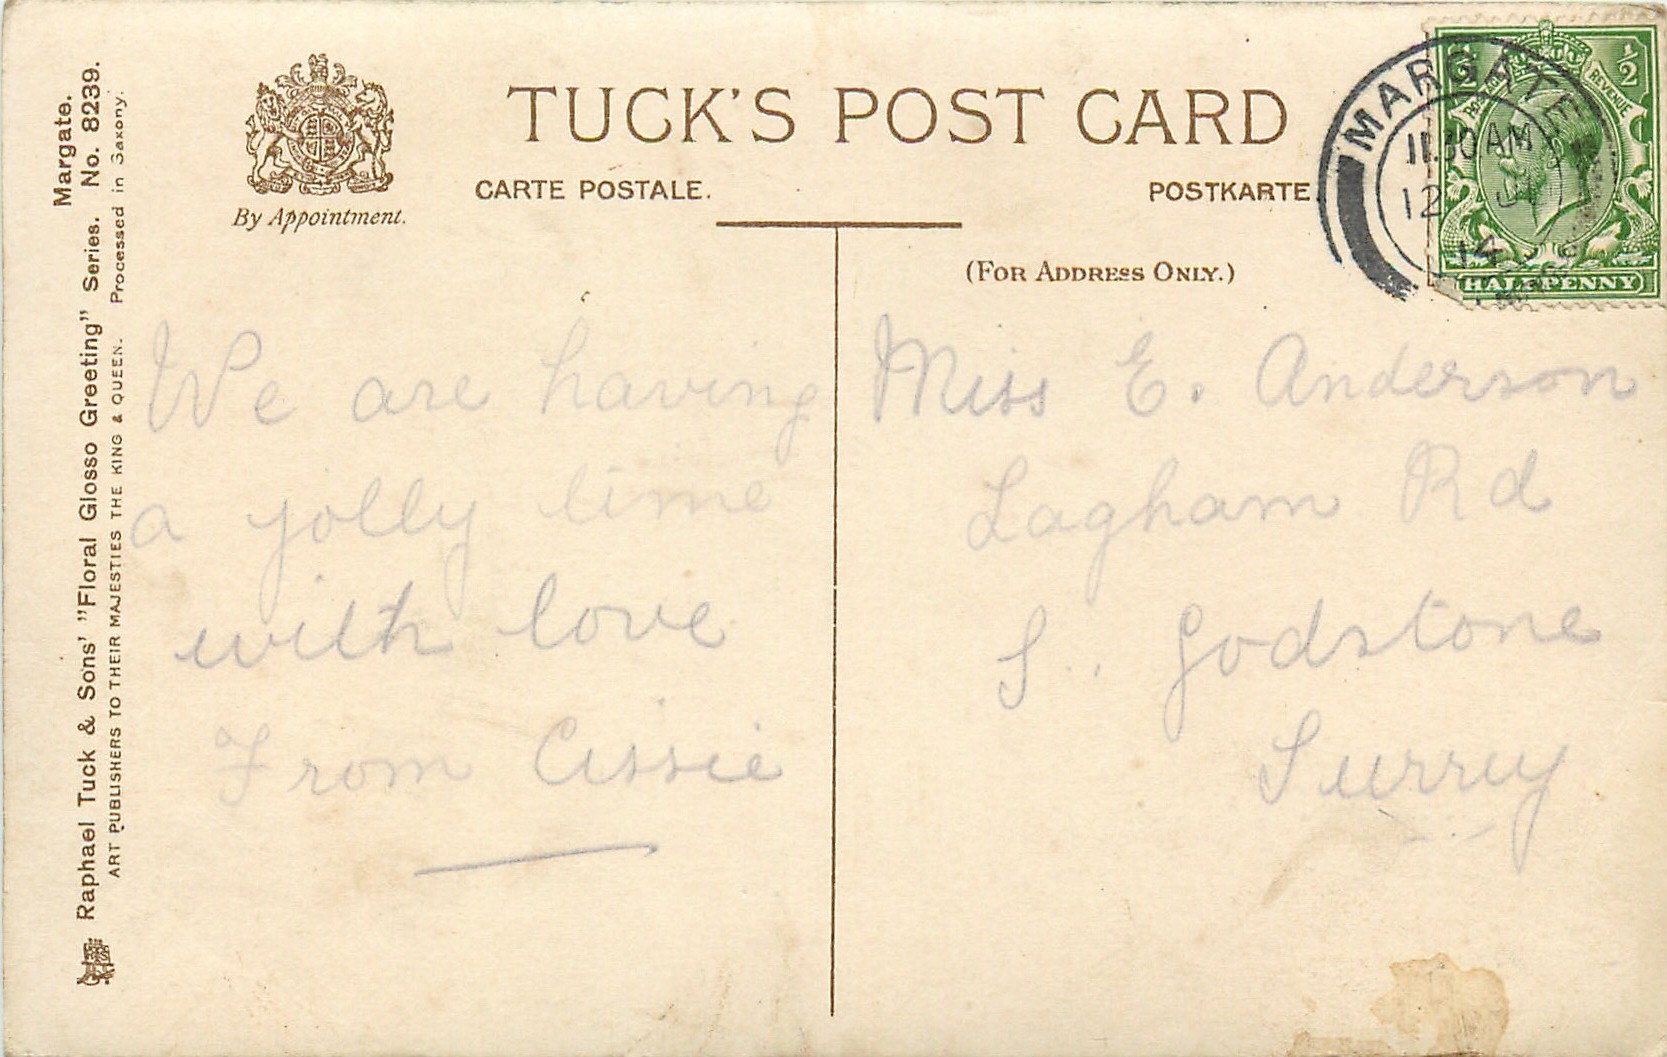 TUCK'S POST CARD
By Appointment.
CARTE POSTALE.
POSTKARTE.
(FOR ADDRESS ONLY.)
MARGATE
11.30 AM
12
14
REVENUE
1/2
HALFPENNY
We are having
a jolly time
with love
From Cissie
Miss E. Anderson
Lagham Rd
S. Godstone
Surrey
Margate.
Raphael Tuck & Sons' "Floral Glosso Greeting" Series. No. 8239.
ART PUBLISHERS TO THEIR MAJESTIES THE KING & QUEEN. Processed in Saxony.